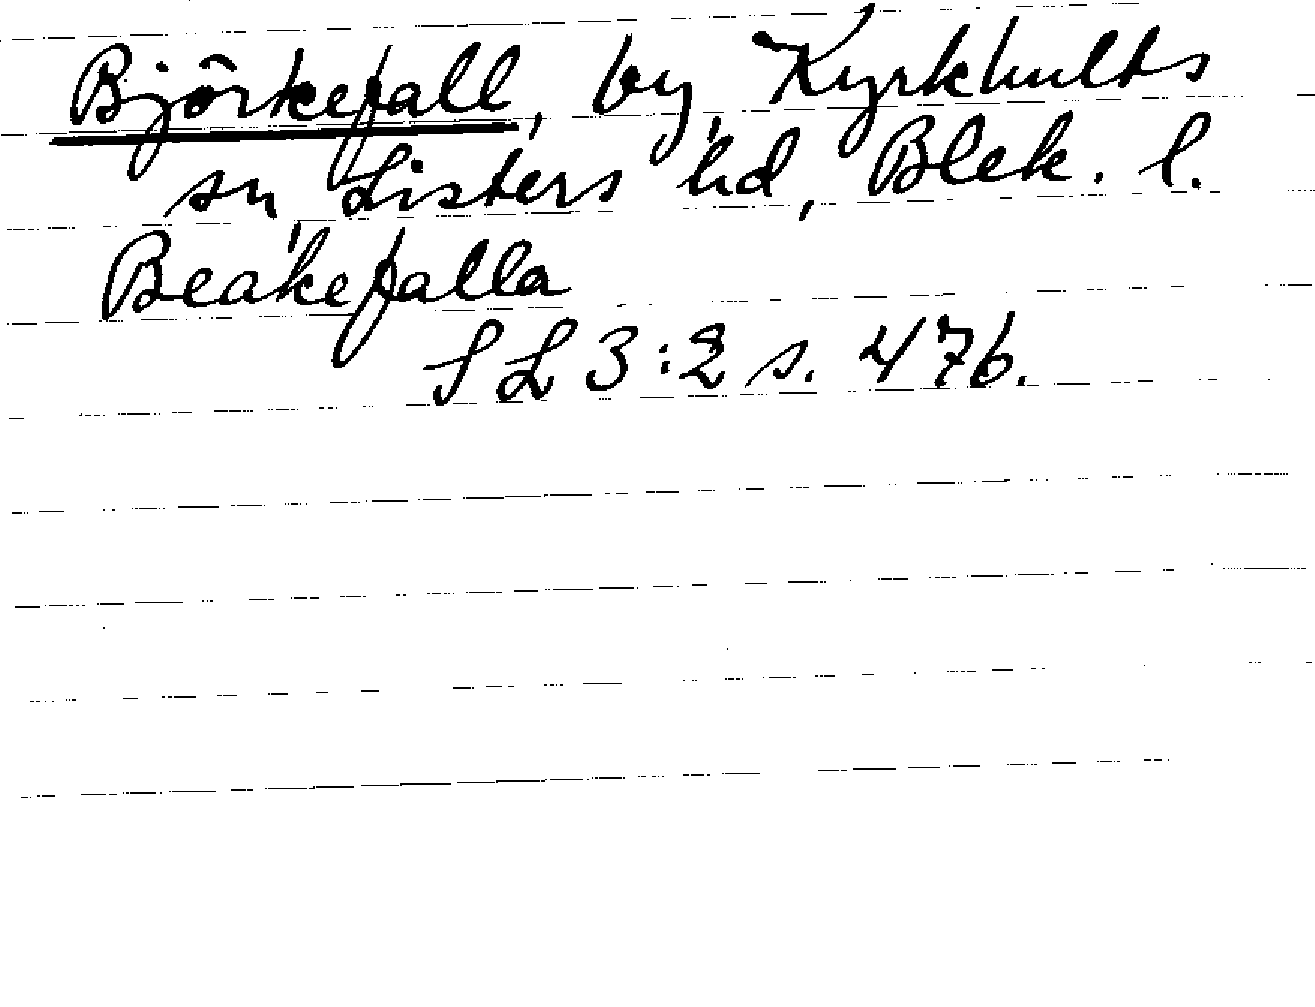 Björkefall, by, Kyrkhults
sn, Listers hd, Blek. l.
Beakefalla
SL 3:2 s. 476.